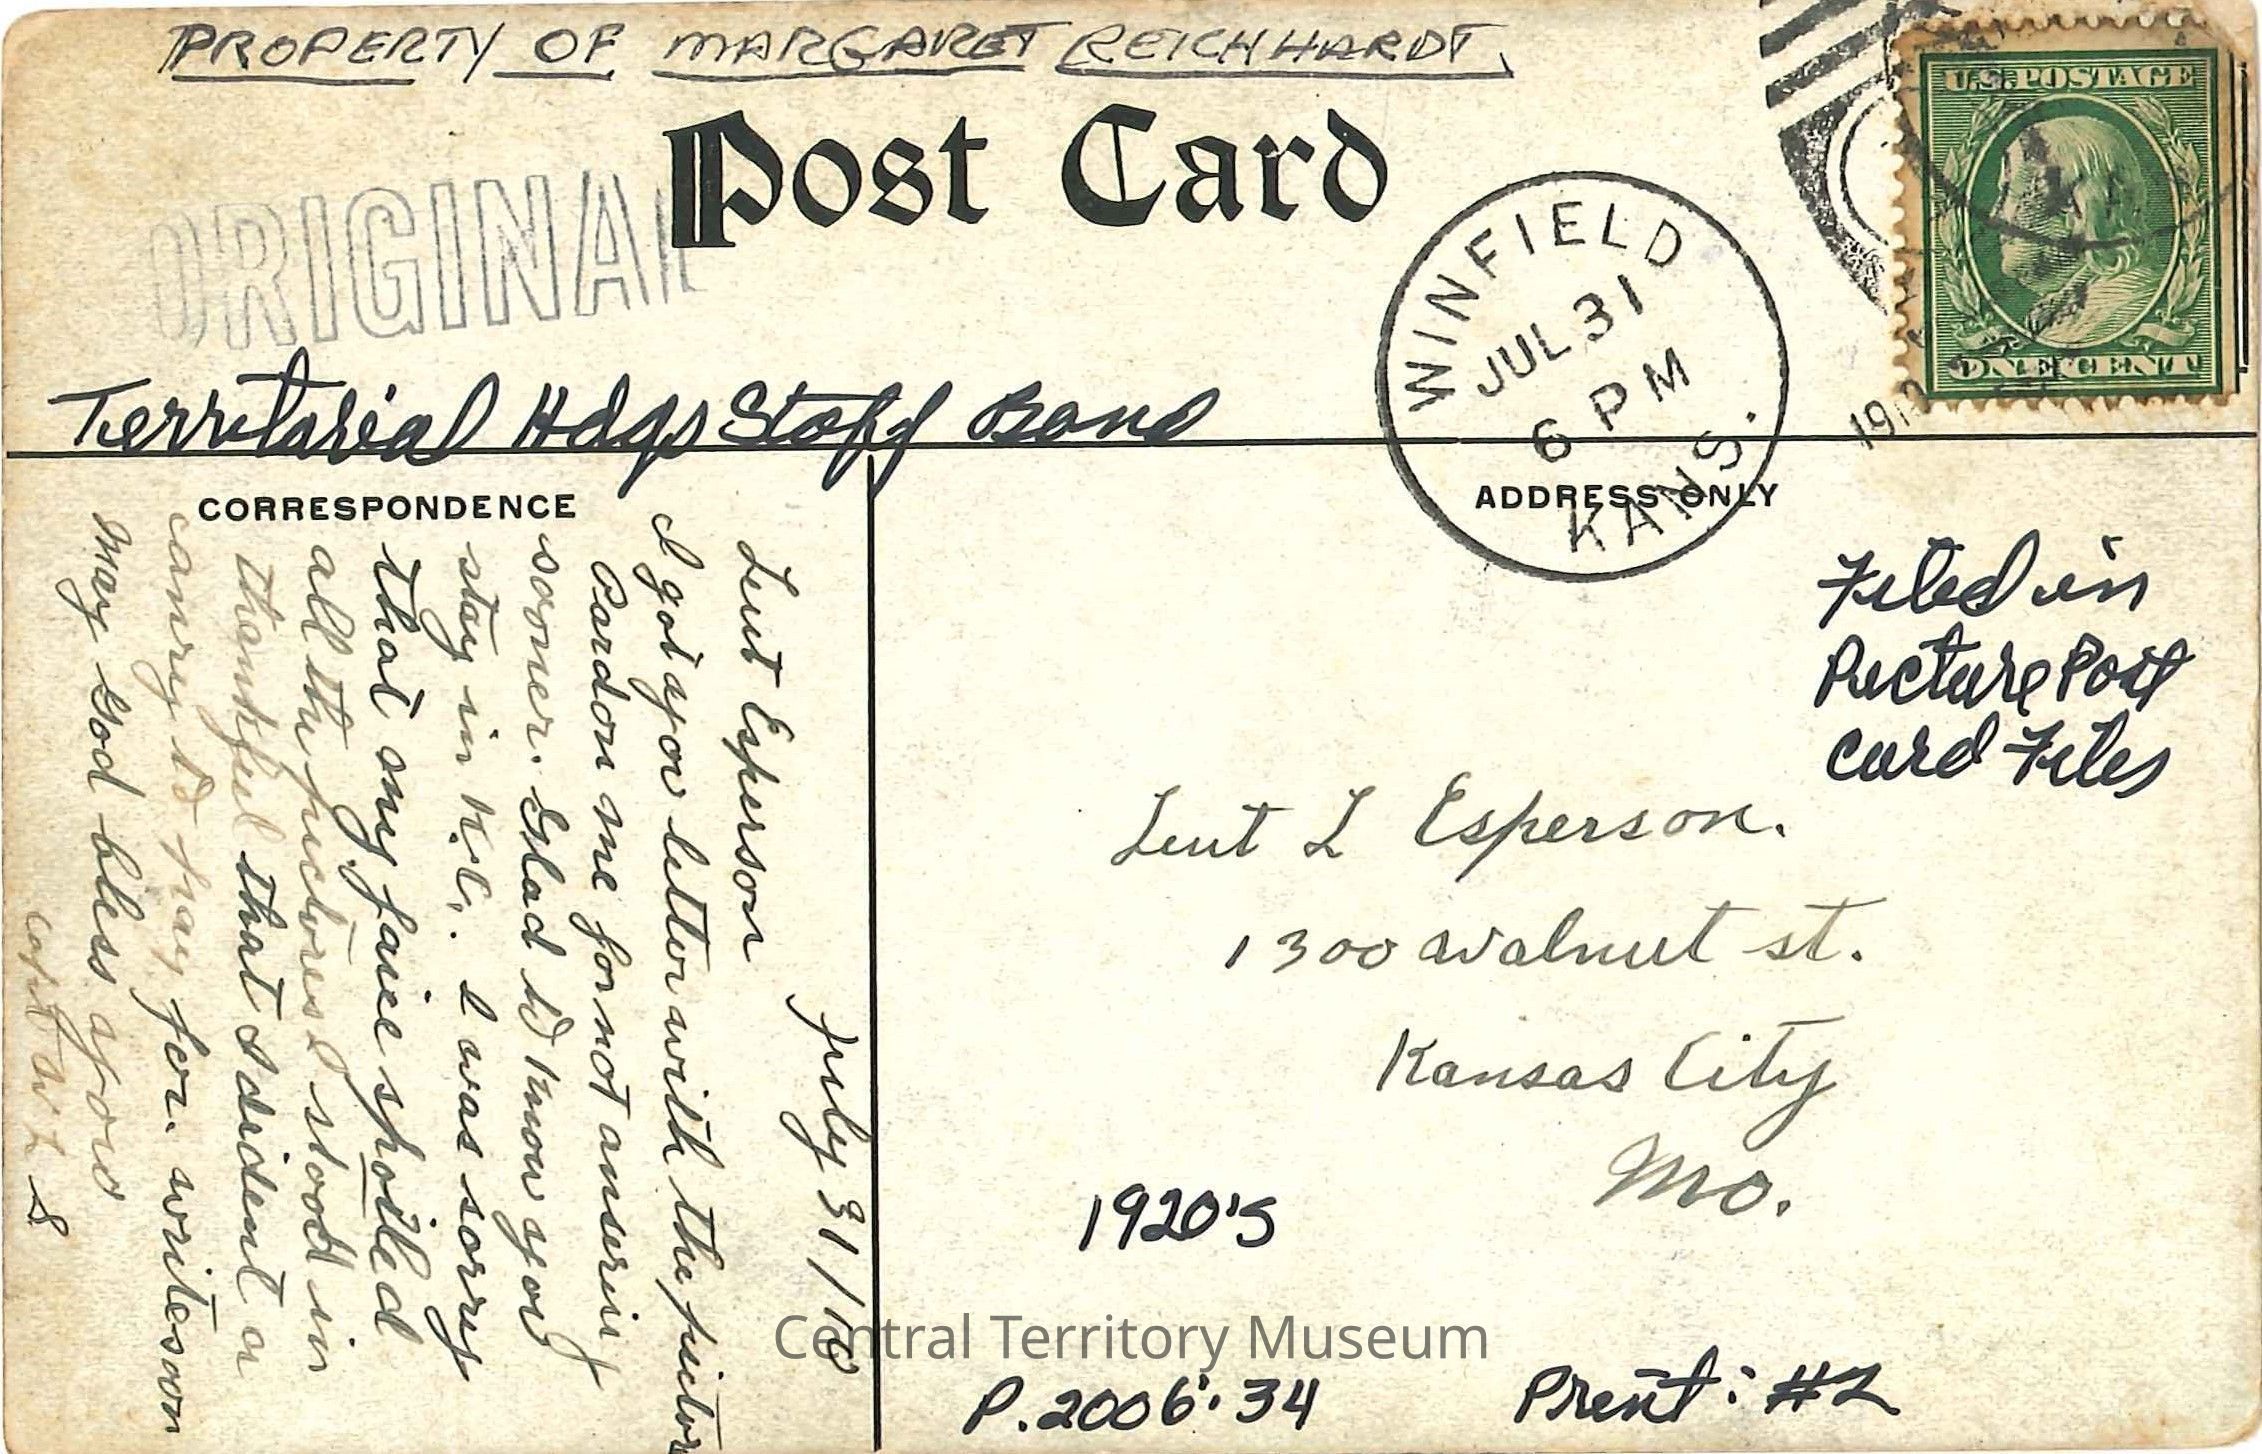 PROPERTY OF MARGARET REICHHARDT
Post Card
ORIGINAL
U.S. POSTAGE
ONE CENT
WINFIELD
JUL 31
6 PM
KANS.
Territorial Hdqs Staff Band
CORRESPONDENCE
ADDRESS ONLY
July 31/10
Leut Esperson
I got your letter with the pictor
Pardon me for not anserin
sooner. Glad to know you
stay in K.C. I was sorry
that my faice spoiled
all the pictures I stood in
thankful that I dident
carry to pay for. write soon
May God bless you
Capt W L S
Filed in
Picture Post
Card Files
Leut L Esperson.
1300 Walnut st.
Kansas City
Mo.
1920's
Central Territory Museum
P.2006:34
Print: #2